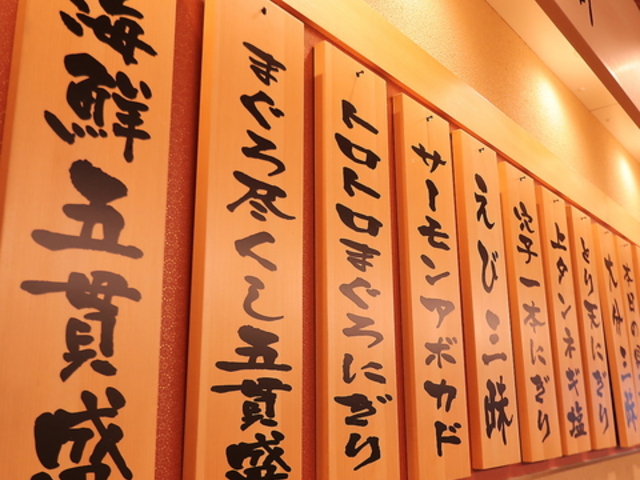 海鮮五貫盛
まぐろ尽くし五貫盛
トロトロまぐろにぎり
サーモンアボカド
えび三昧
穴子一本にぎり
上タンネギ塩
とり天にぎり
大分三昧
本日の